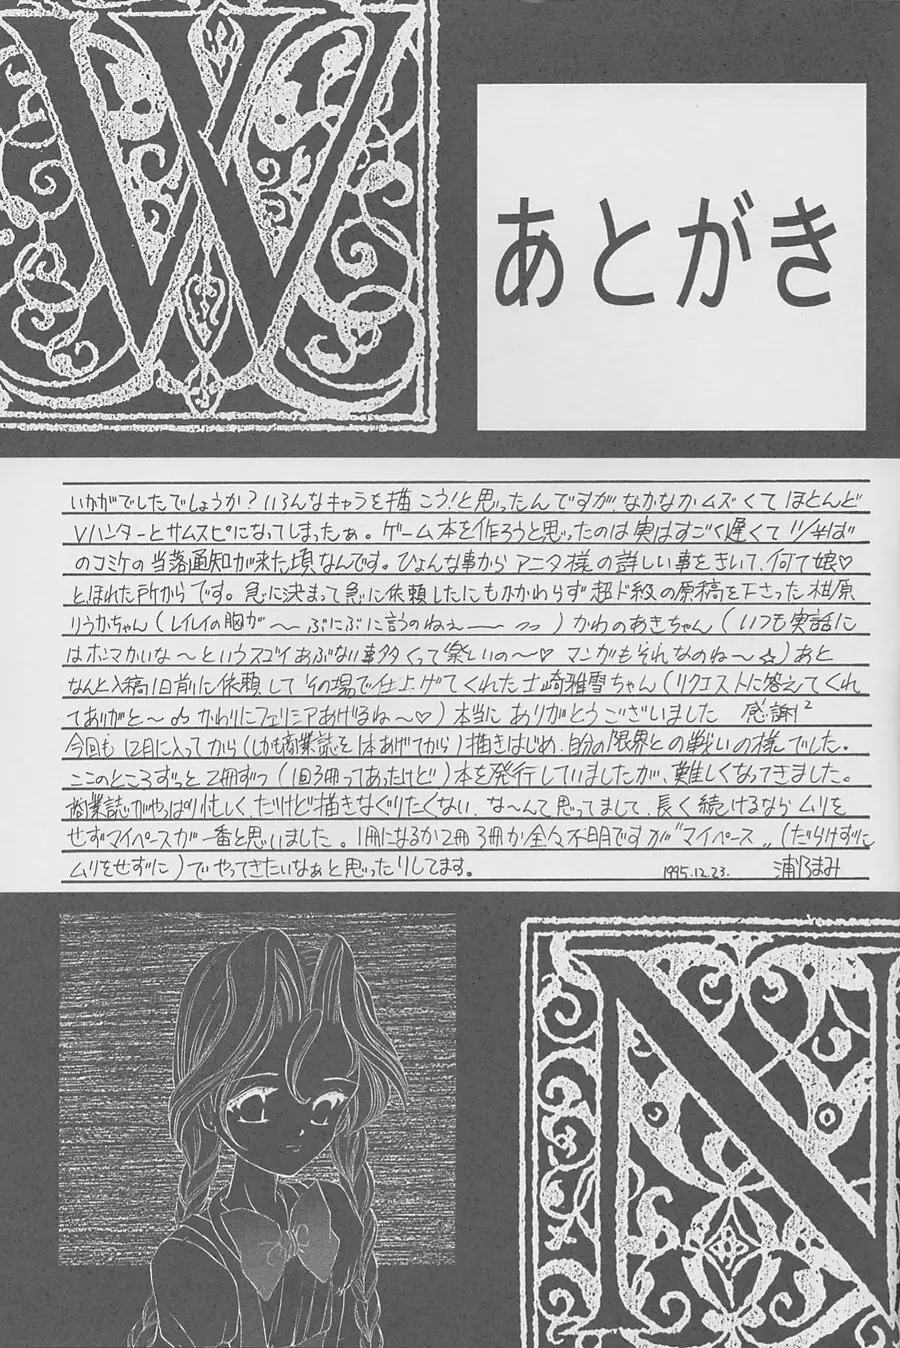 W
あとがき
いかがでしたでしょうか？いろんなキャラを描こう！と思ったんですがなかなかムズくてほとんど
Vハンターとサムスピになってしまったぁ。ゲーム本を作ろうと思ったのは実はすごく遅くて11/半ば
のコミケの当落通知が来た頃なんです。ひょんな事からアニタ様の詳しい事をきいて、何て娘♡
とほれた所からです。急に決まって急に依頼したにもかかわらず超ド級の原稿を下さった 原
りうかちゃん（レイレイの胸が〜ぷにぷに言うのねぇ──）かわのあきちゃん（いつも実話に
はホンマかいな〜というスゴイあぶない事多くって楽しいの〜♡マンガもそれなのね〜☆）あと
なんと入稿1日前に依頼してその場で仕上げてくれた士崎雅雪ちゃん（リクエストに答えてくれ
てありがと〜♪かわりにフェリシアあげるね〜♡）本当にありがとうございました 感謝²
今回も12月に入ってから（しかも商業誌を1本あげてから）描きはじめ、自分の限界との戦いの様でした。
ここのところずっと2冊ずつ（1回3冊ってあったけど）本を発行していましたが、難しくなってきました。
商業誌がやっぱり忙しく、だけど描きなぐりたくない、な〜んて思ってまして、長く続けるならムリを
せずマイペースが一番と思いました。1冊になるか2冊3冊か全々不明ですが"マイペース"（だらけずに
ムリをせずに）でやってきたいなぁと思ったりしてます。 1995.12.23. 浦乃まみ
N